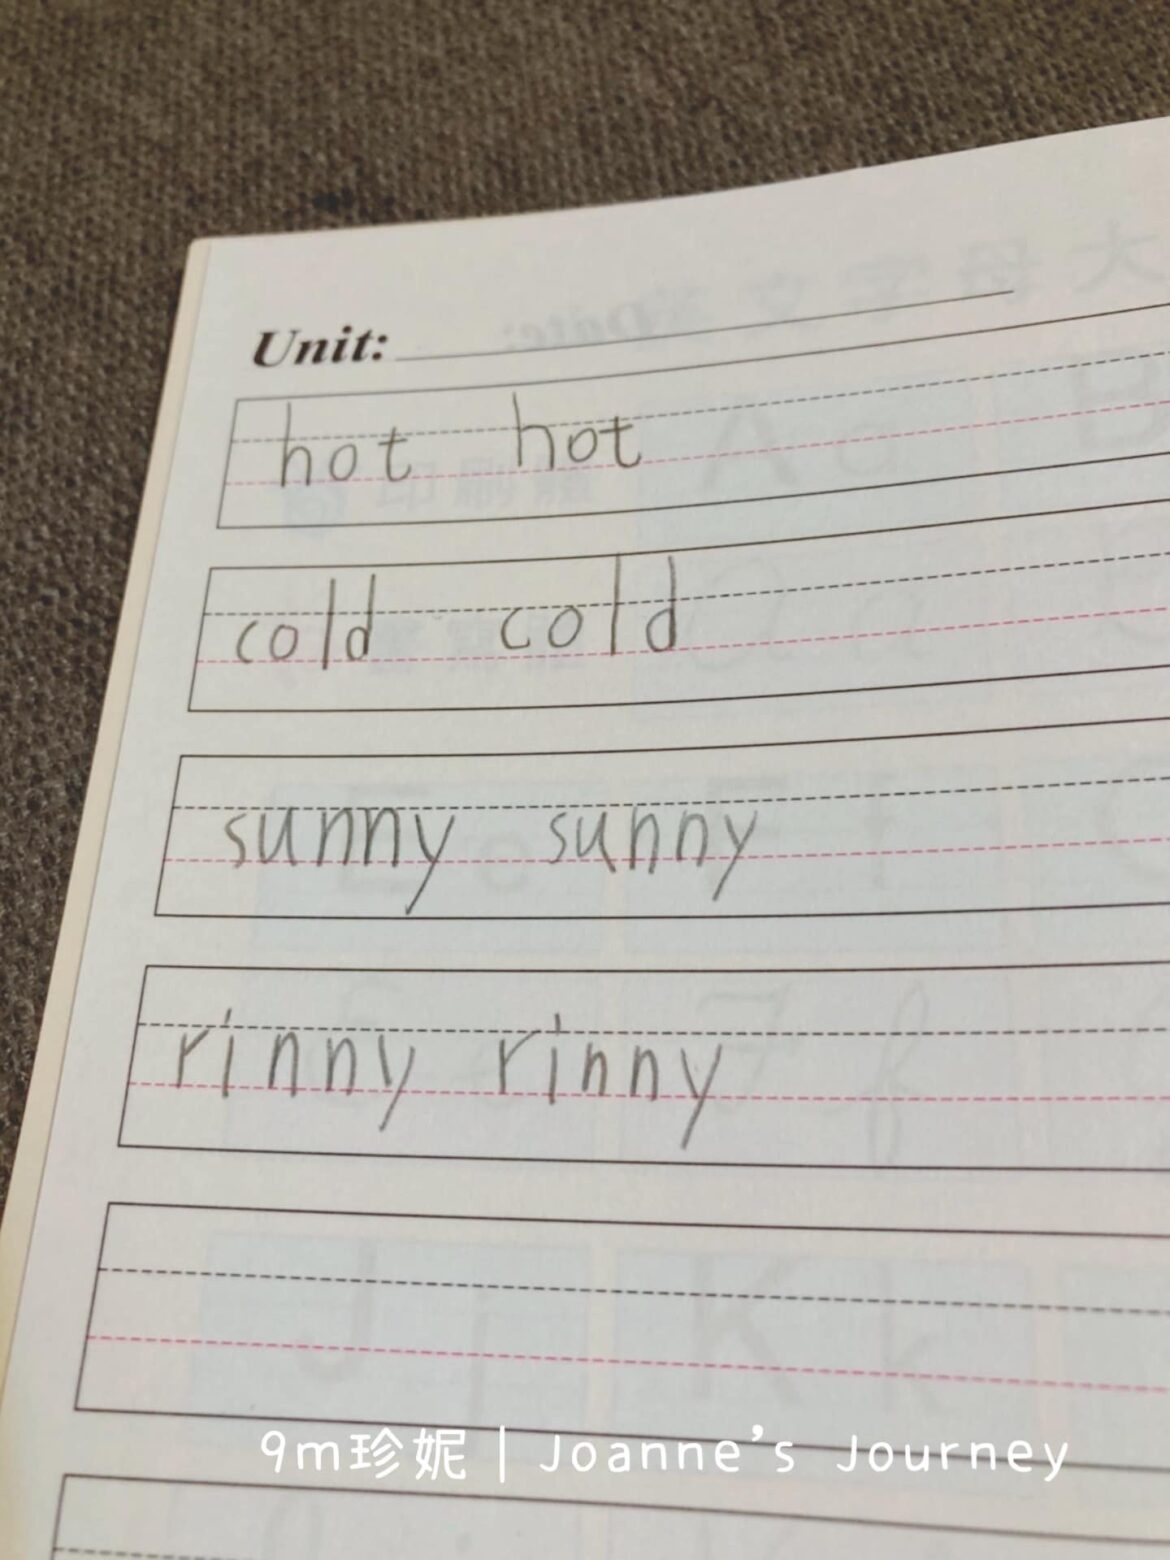 Unit:
hot hot
cold cold
sunny sunny
rinny rinny
9m珍妮 | Joanne's Journey